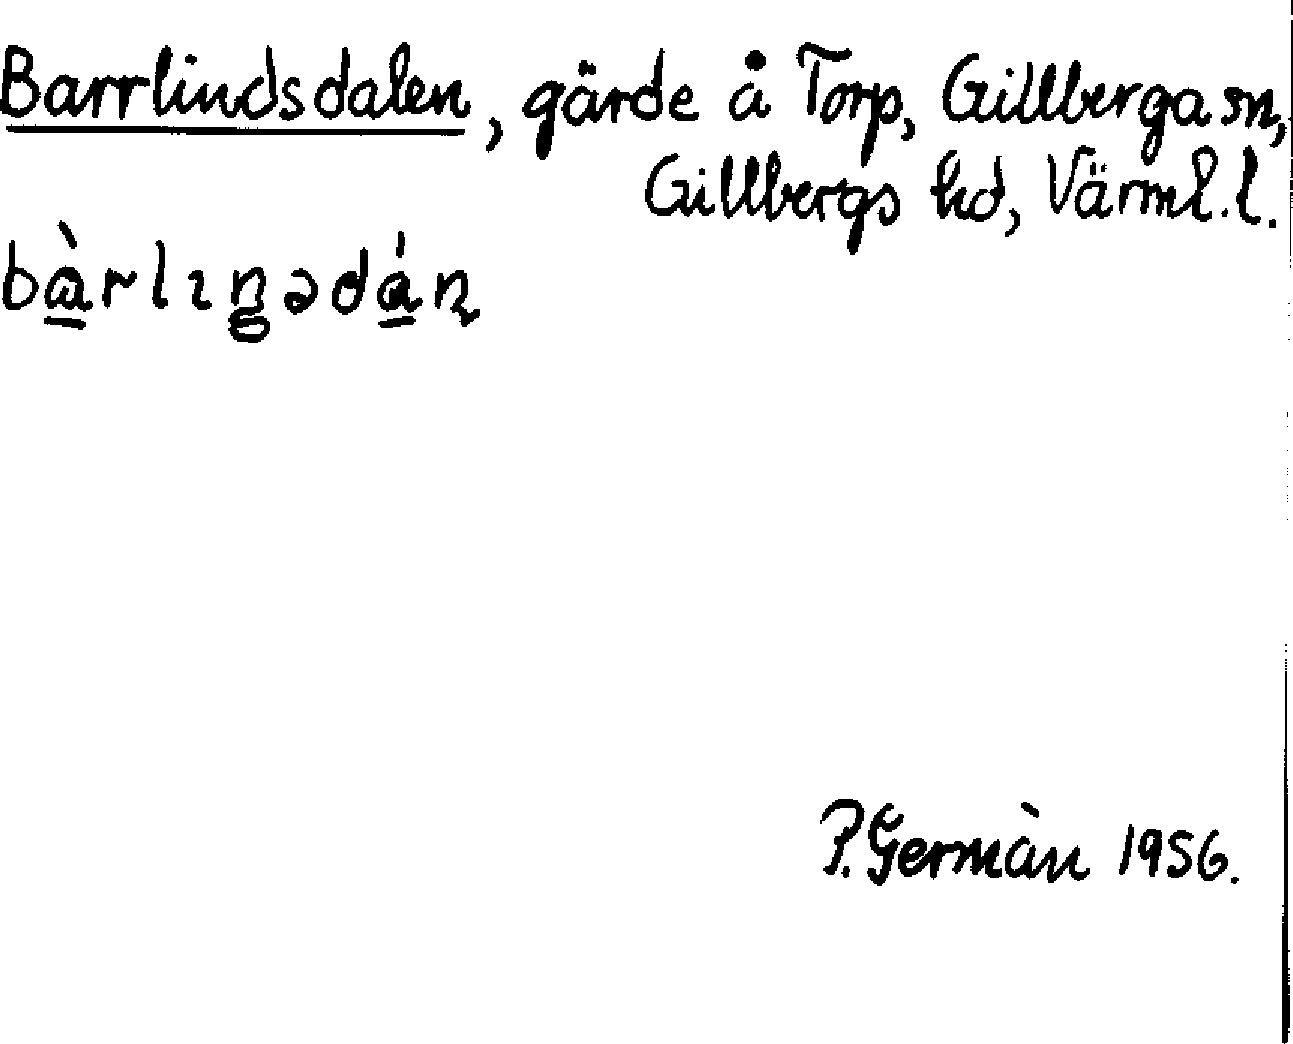 Barrlindsdalen, gärde å Torp, Gillberga sn,
Gillbergs hd, Värml. l.
bàrlıŋədáɳ
P. Germàn 1956.